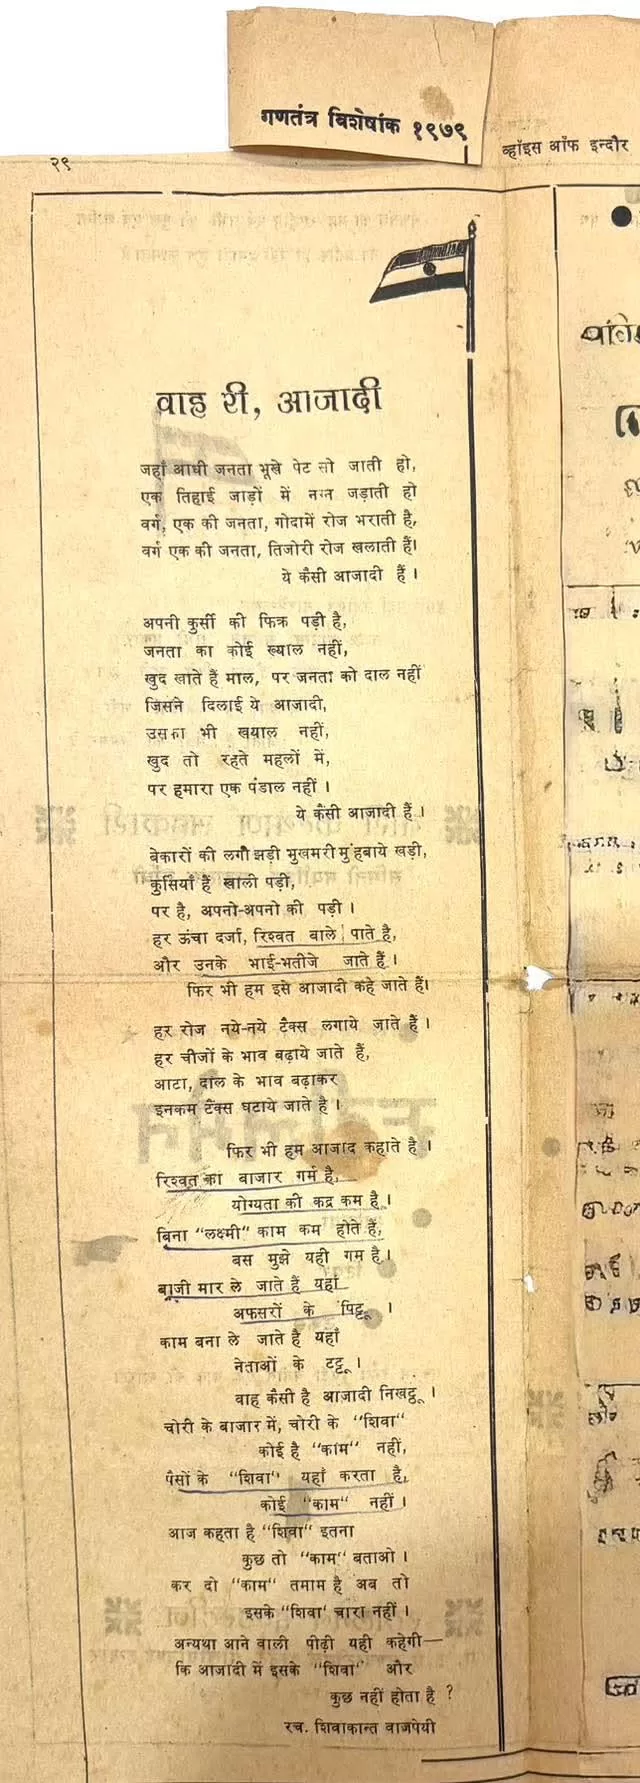 गणतंत्र विशेषांक १९७९
व्हॉइस ऑफ इन्दौर
२९
वाह री, आजादी
जहाँ आधी जनता भूखे पेट सो जाती हो,
एक तिहाई जाड़ों में नग्न जड़ाती हो
वर्ग, एक की जनता, गोदामें रोज भराती है,
वर्ग एक की जनता, तिजोरी रोज खलाती हैं।
ये कैसी आजादी हैं ।
अपनी कुर्सी की फिक्र पड़ी है,
जनता का कोई ख्याल नहीं,
खुद खाते हैं माल, पर जनता को दाल नहीं
जिसने दिलाई ये आजादी,
उसका भी खयाल नहीं,
खुद तो रहते महलों में,
पर हमारा एक पंडाल नहीं ।
ये कैसी आजादी हैं ।
बेकारों की लगी झड़ी भुखमरी मुंहबाये खड़ी,
कुर्सियाँ हैं खाली पड़ी,
पर है, अपनो-अपनो की पड़ी ।
हर ऊंचा दर्जा, रिश्वत वाले पाते है,
और उनके भाई-भतीजे जाते हैं ।
फिर भी हम इसे आजादी कहे जाते हैं।
हर रोज नये-नये टैक्स लगाये जाते हैं ।
हर चीजों के भाव बढ़ाये जाते हैं,
आटा, दाल के भाव बढ़ाकर
इनकम टैक्स घटाये जाते है ।
फिर भी हम आजाद कहाते है ।
रिश्वत का बाजार गर्म है,
योग्यता की कद्र कम है ।
बिना "लक्ष्मी" काम कम होते हैं,
बस मुझे यही गम है ।
बाजी मार ले जाते हैं यहाँ
अफसरों के पिट्टू ।
काम बना ले जाते है यहाँ
नेताओं के टट्टू ।
वाह कैसी है आजादी निखट्टू ।
चोरी के बाजार में, चोरी के "शिवा"
कोई है "काम" नहीं,
पैसों के "शिवा" यहाँ करता है,
कोई "काम" नहीं ।
आज कहता है "शिवा" इतना
कुछ तो "काम" बताओ ।
कर दो "काम" तमाम है अब तो
इसके "शिवा' चारा नहीं ।
अन्यथा आने वाली पीढ़ी यही कहेगी—
कि आजादी में इसके "शिवा" और
कुछ नहीं होता है ?
रच. शिवाकान्त वाजपेयी